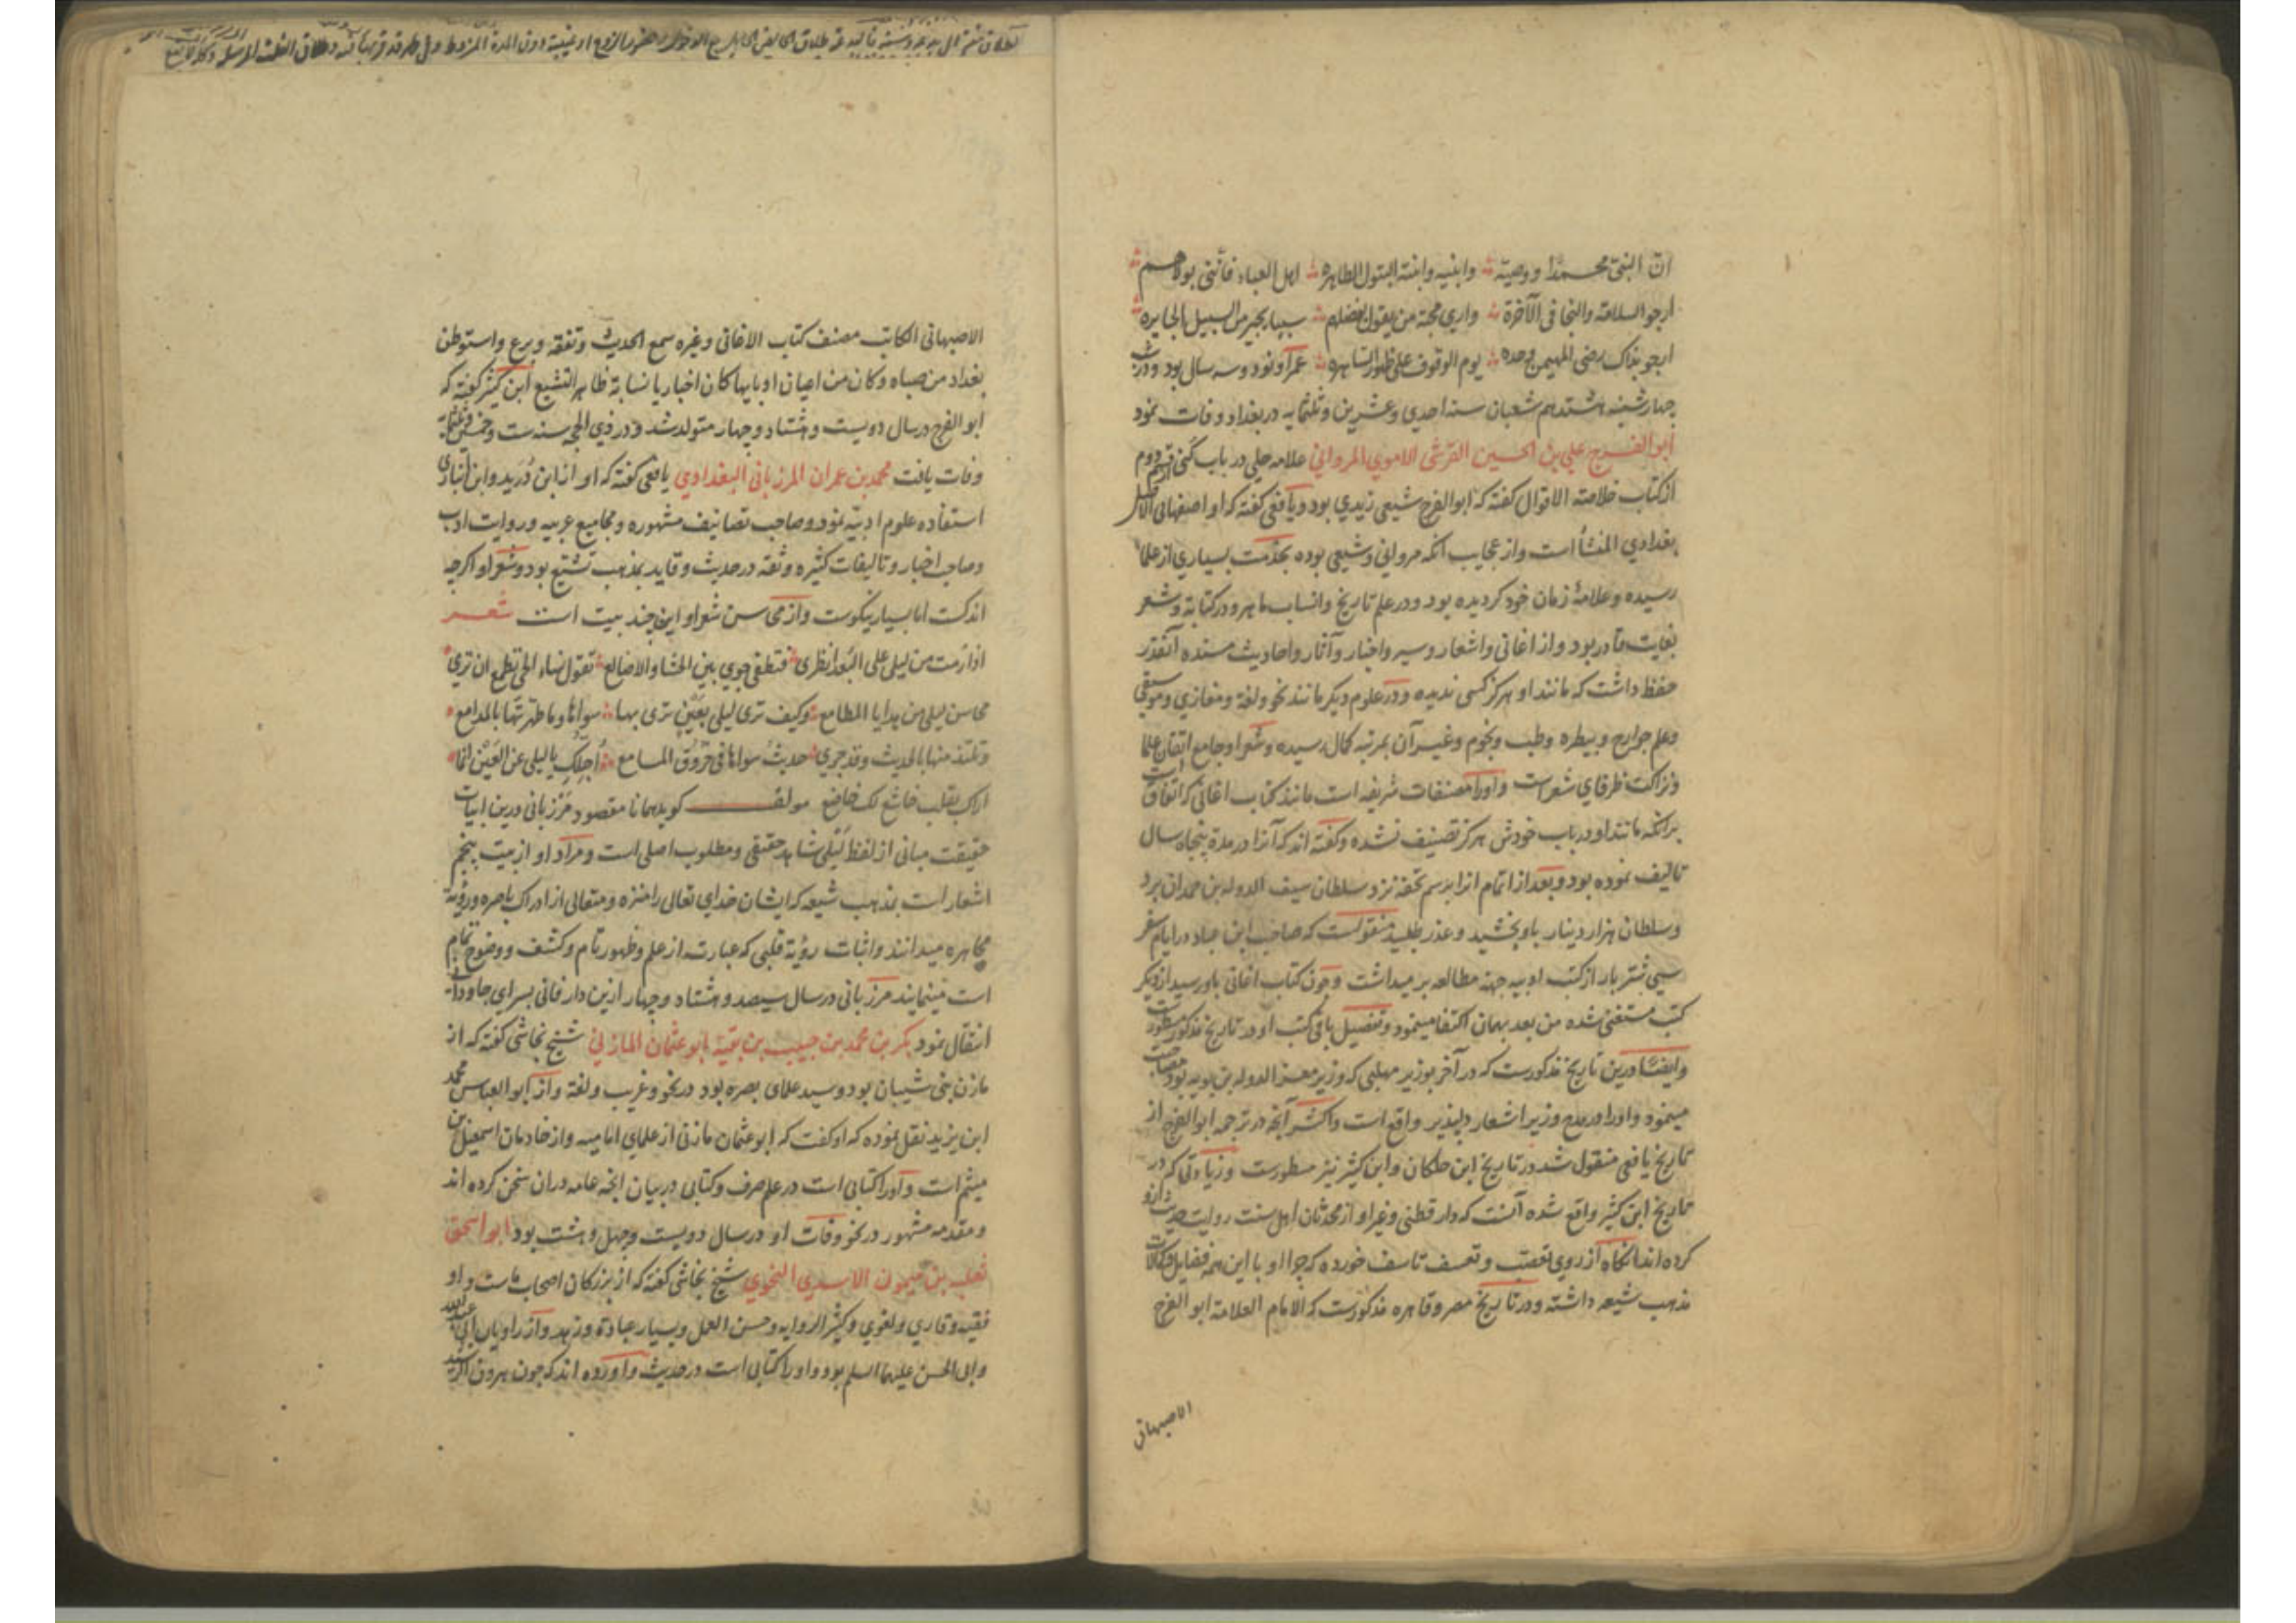 ان النبی محمدا ووصیه وابنیه وابنته البتول الطاهره اهل العباء فانی بولاهم
ارجو السلامة والنجا فی الآخرة واری محبة من یقول بفضلهم سببا یجیر من السبیل الجایره
ارجو بذاک رضی المهیمن وحده یوم الوقوف علی ظهور الساهره عمر او نود وسه سال بود ودر شب
چهارشنبه هشتدهم شعبان سنه احدی وعشرین وثلثمایه در بغداد وفات نمود
ابو الفرج علی بن الحسین القرشی الاموی المروانی علامه حلی در باب کنی قسم دوم
از کتاب خلاصة الاقوال کفته که ابو الفرج شیعی زیدی بود ویافعی کفته که او اصفهانی الاصل
بغدادی المنشأ است واز عجایب آنکه مروانی وشیعی بوده بخدمت بسیاری از علما
رسیده وعلامهٔ زمان خود کردیده بود ودر علم تاریخ وانساب ماهر ودر کتابة وشعر
بغایت قادر بود واز اغانی واشعار وسیر واخبار وآثار واحادیث مسنده آنقدر
حفظ داشت که مانند او هرکز کسی ندیده ودر علوم دیکر مانند نحو ولغة ومغازی وموسیقی
وعلم جوارح وبیطره وطب ونجوم وغیر آن بمرتبه کمال رسیده وشعر او جامع اتقان علما
ونزاکت ظرفای شعر است واورا مصنفات شریفه است مانند کتاب اغانی که اتفاق است
برانکه مانند او در باب خودش هرکز تصنیف نشده وکفته اند که آنرا در مدة پنجاه سال
تالیف نموده بود وبعد از اتمام انرا برسم تحفه نزد سلطان سیف الدوله بن حمدان برد
وسلطان هزار دینار باو بخشید وعذر طلبید منقولست که صاحب ابن عباد در ایام سفر
سی شتر بار از کتب ادبیه جهة مطالعه بر میداشت وچون کتاب اغانی باو رسید از دیکر
کتب مستغنی شده من بعد بهمان اکتفا مینمود وتفصیل باقی کتب او در تاریخ مذکور مسطورست
وایضا درین تاریخ مذکورست که در آخر بوزیر مهلبی که وزیر معز الدوله بن بویه بود مصاحبت
مینمود واورا در مدح وزیر اشعار دلپذیر واقع است واکثر آنچه در ترجمه ابو الفرج از
تاریخ یافعی منقول شد در تاریخ ابن خلکان وابن کثیر نیز مسطورست وزیادتی که در
تاریخ ابن کثیر واقع شده آنست که دارقطنی وغیر او از محدثان اهل سنت روایت حدیث ازو
کرده اند انکاه از روی تعصب وتعسف تاسف خورده که چرا او با این همه فضایل وکمالات
مذهب شیعه داشته ودر تاریخ مصر وقاهره مذکورست که الامام العلامة ابو الفرج
الاصبهانی
الاصبهانی الکاتب مصنف کتاب الاغانی وغیره سمع الحدیث وتفقه وبرع واستوطن
بغداد من صباه وکان من اعیان ادبایها کان اخباریا نسابة ظاهر التشیع ابن کثیر کفته که
ابو الفرج در سال دویست وهشتاد وچهار متولد شد ودر ذی الحجه سنه ست وخمسین وثلثمایة
وفات یافت محمد بن عمران المرزبانی البغدادی یافعی کفته که او از ابن درید وابن انباری
استفاده علوم ادبیه نمود وصاحب تصانیف مشهوره ومجامیع عربیه وروایت ادب
وصاحب اخبار وتالیفات کثیره وثقه در حدیث وقاید بمذهب تشیع بود وشعر او اکرچه
اندکست اما بسیار نیکوست واز محاسن شعر او این چند بیت است شعر
اذا رمت من لیلی علی البعد نظری فتطفی جوی بین الحشا والاضالع تقول نساء الحی تطمع ان تری
محاسن لیلی من بدایا المطامع وکیف تری لیلی بعین تری بها سواها وما طهرتها بالمدامع
وتلتذ منها بالحدیث وقد جری حدیث سواها فی خروق المسامع اجلک یا لیلی عن العین انما
اراک بقلب خاشع لک خاضع مولف کوید همانا مقصود مرزبانی درین ابیات
حقیقت مبانی از لفظ لیلی شاهد حقیقی ومطلوب اصلی است ومراد او از بیت پنجم
اشعار است بمذهب شیعه که ایشان خدای تعالی را منزه ومتعالی از ادراک باصره ورؤیة
مجاهره میدانند واثبات رؤیة قلبی که عبارت از علم وظهور تام وکشف ووضوح تمام
است مینمایند مرزبانی در سال سیصد وهشتاد وچهار ازین دار فانی بسرای جاودانی
انتقال نمود بکر بن محمد بن حبیب بن بقیة ابو عثمان المازنی شیخ نجاشی کفته که از
مازن بنی شیبان بود وسید علمای بصره بود در نحو وغریب ولغة واز ابو العباس محمد
ابن یزید نقل نموده که او کفت که ابو عثمان مازنی از علمای امامیه واز خادمان اسمعیل بن
میثم است واورا کتابی است در علم صرف وکتابی در بیان انچه عامه دران سخن کرده اند
ومقدمه مشهور در نحو وفات او در سال دویست وچهل وهشت بود ابو اسحق
ثعلبة بن میمون الاسدی النحوی شیخ نجاشی کفته که از بزرکان اصحاب ماست واو
فقیه وقاری ولغوی وکثیر الروایه وحسن العمل وبسیار عبادة وزهد واز راویان ابی عبدالله
وابی الحسن علیهما السلم بود واورا کتابی است در حدیث وآورده اند که چون هرون الرشید